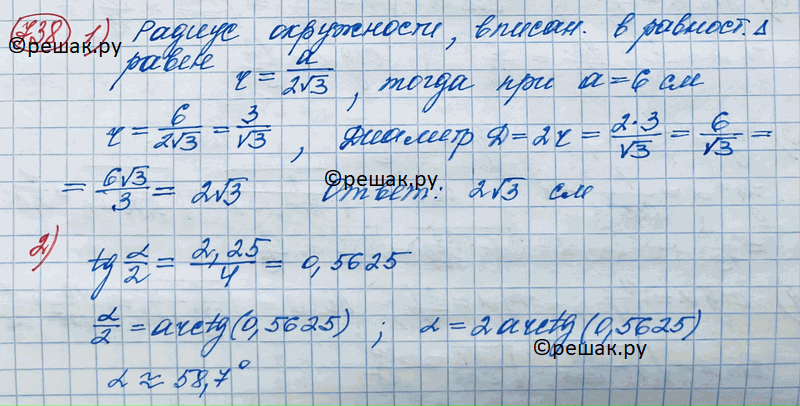 738 1) Радиус окружности, вписан. в равност. Δ
©решак.ру
равен r = a/2√3, тогда при a = 6 см
r = 6/2√3 = 3/√3, Диаметр D = 2r = 2·3/√3 = 6/√3 =
= 6√3/3 = 2√3 Ответ: 2√3 см
©решак.ру
2) tg α/2 = 2,25/4 = 0,5625
α/2 = arctg(0,5625); α = 2arctg(0,5625)
©решак.ру
α ≈ 58,7°